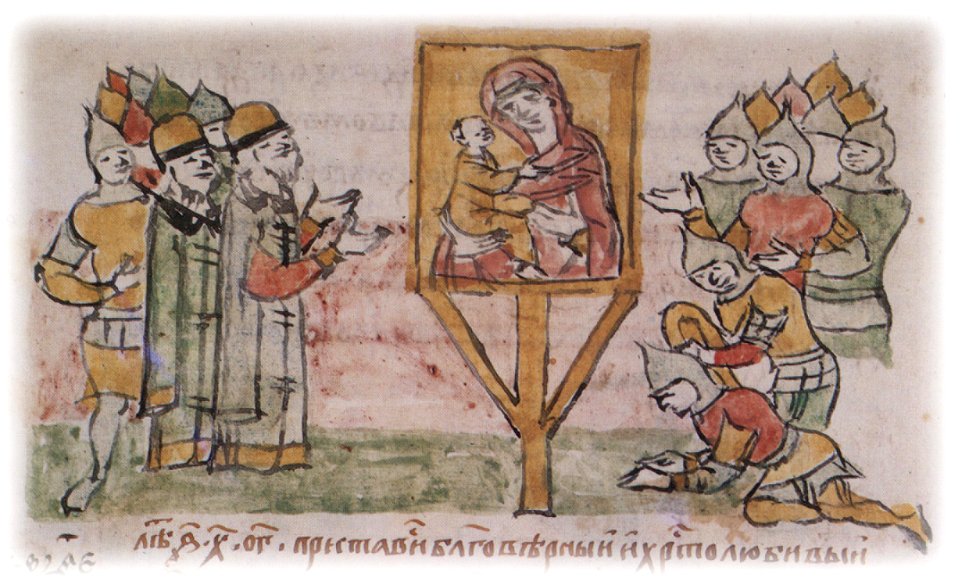 лѣ҇ ҂ѕ҃ · х҃ · ог҃ · преставис҇ блг҃овѣрныи и хрс҇толюбивыи